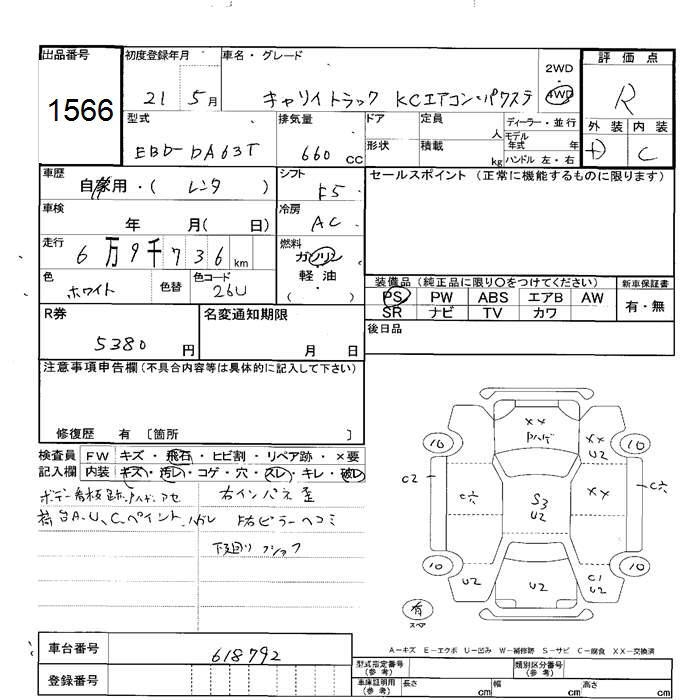 出品番号 初度登録年月 車名・グレード 評価点
1566 21 5月 キャリイトラック KCエアコン・パワステ 2WD・4WD R
型式 排気量 ドア 定員 人 ディーラー・並行 外装 内装
EBD-DA63T 660cc 形状 積載 kg モデル年式 年 ハンドル 左・右 C
車歴 シフト セールスポイント(正常に機能するものに限ります)
自家用・( レンタ ) F5
車検 冷房
年 月( 日) AC
走行 燃料
6万9千736km ガソリン
色 色替 色コード 軽油 装備品(純正品に限り○をつけてください) 新車保証書
ホワイト 26U ( ) PS PW ABS エアB AW 有・無
SR ナビ TV カワ
R券 名変通知期限 後日品
5380円 月 日
注意事項申告欄(不具合内容等は具体的に記入して下さい)
修復歴 有 〔箇所 〕
検査員 FW キズ・飛石・ヒビ割・リペア跡・×要
記入欄 内装 キズ・汚レ・コゲ・穴・スレ・キレ・破レ
ボデー看板跡、
荷台A、U、C、ペイント、ハガレ
右インパネ歪
右ピラーヘコミ
下廻り
XX
10 10
XX
U2
C2 C穴 S3 XX C穴
U2
10 10
U2 U2 C1
U2
有
スペア
A-キズ E-エクボ U-凹み W-補修跡 S-サビ C-腐食 XX-交換済
車台番号 618792 型式指定番号(参考) 類別区分番号(参考)
登録番号 車庫証明用(参考) 長さ cm 幅 cm 高さ cm